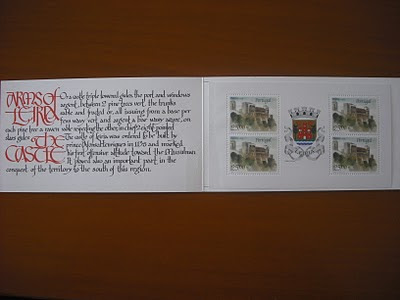 ARMS of
LEIRIA
the
CASTLE
Or a castle triple towered gules the port and windows
argent, between 2 pine trees vert, the trunks
sable and fruited or, all issuing from a base per
fess wavy vert and argent a bar wavy azure, on
each pine tree a raven sable regarding the other, in chief 2 eight pointed
stars gules.
The castle of Leiria was ordered to be built by
prince Afonso Henriques in 1135 and marked
his first offensive attitude toward the Mussulman.
It played also an important part in the
conquest of the territory to the south of this region.
Portugal
Portugal
Portugal
Portugal